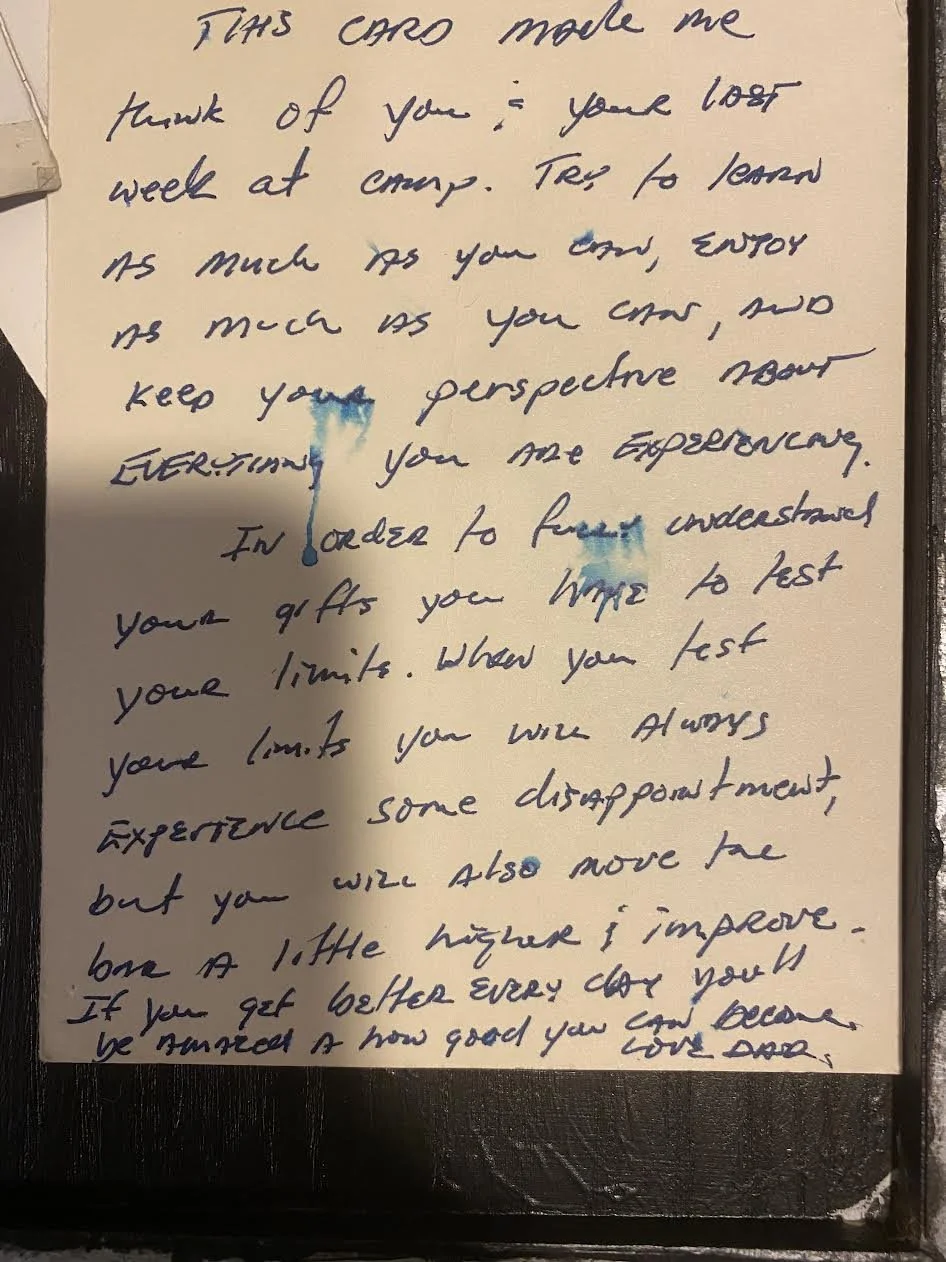 THIS CARD made me
think of you & your last
week at camp. Try to learn
as much as you can, enjoy
as much as you can, and
keep your perspective about
everything you are experiencing.
In order to fully understand
your gifts you have to test
your limits. When you test
your limits you will always
experience some disappointment,
but you will also move the
bar a little higher & improve.
If you get better every day you'll
be amazed a how good you can become.
Love Dad.